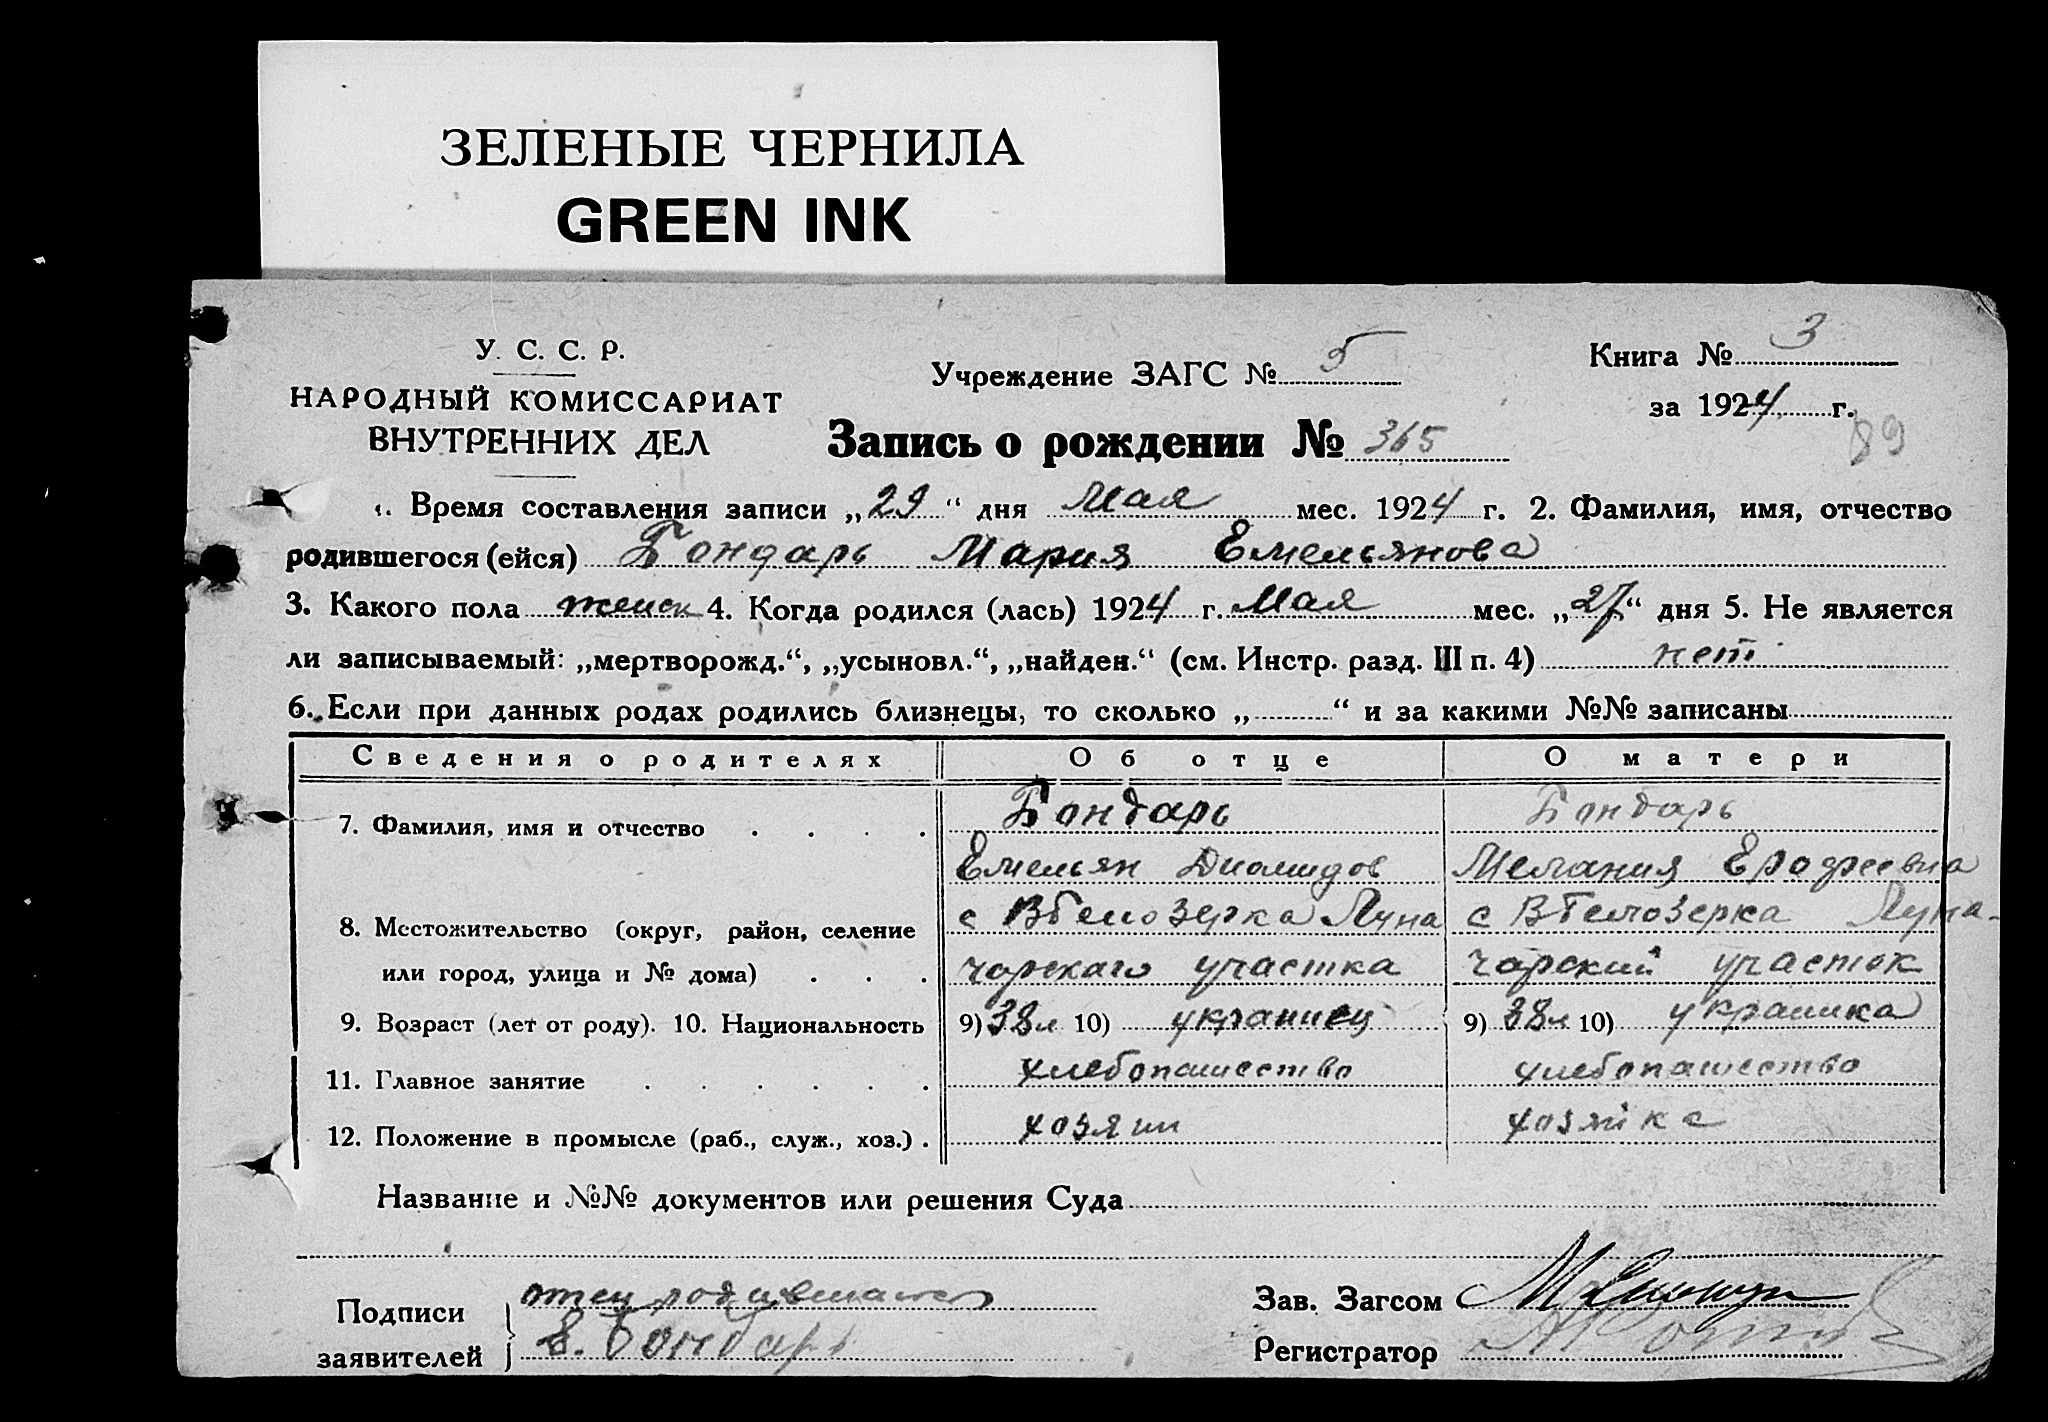 ЗЕЛЕНЫЕ ЧЕРНИЛА
GREEN INK
У. С. С. Р.
НАРОДНЫЙ КОМИССАРИАТ
ВНУТРЕННИХ ДЕЛ
Учреждение ЗАГС № 5
Книга № 3
за 1924 г.
89
Запись о рождении № 365
Время составления записи „29“ дня Мая мес. 1924 г. 2. Фамилия, имя, отчество
родившегося (ейся) Бондарь Мария Емельянова
3. Какого пола женск 4. Когда родился (лась) 1924 г. Мая мес. „27“ дня 5. Не является
ли записываемый: „мертворожд.“, „усыновл.“, „найден.“ (см. Инстр. разд. III п. 4) нет
6. Если при данных родах родились близнецы, то сколько „ “ и за какими №№ записаны
Сведения о родителях Об отце О матери
7. Фамилия, имя и отчество Бондарь Бондарь
Емельян Диомидов Мелания Ерофеевна
8. Местожительство (округ, район, селение с ВБелозерка Луна с ВБелозерка Луна-
или город, улица и № дома) чарскаго участка чарский участок
9. Возраст (лет от роду). 10. Национальность 9) 38л 10) украинец 9) 38л 10) украинка
11. Главное занятие хлебопашество хлебопашество
12. Положение в промысле (раб., служ., хоз.) хозяин хозяйка
Название и №№ документов или решения Суда
Подписи заявителей отец
Е. Бондарь
Зав. Загсом
Регистратор